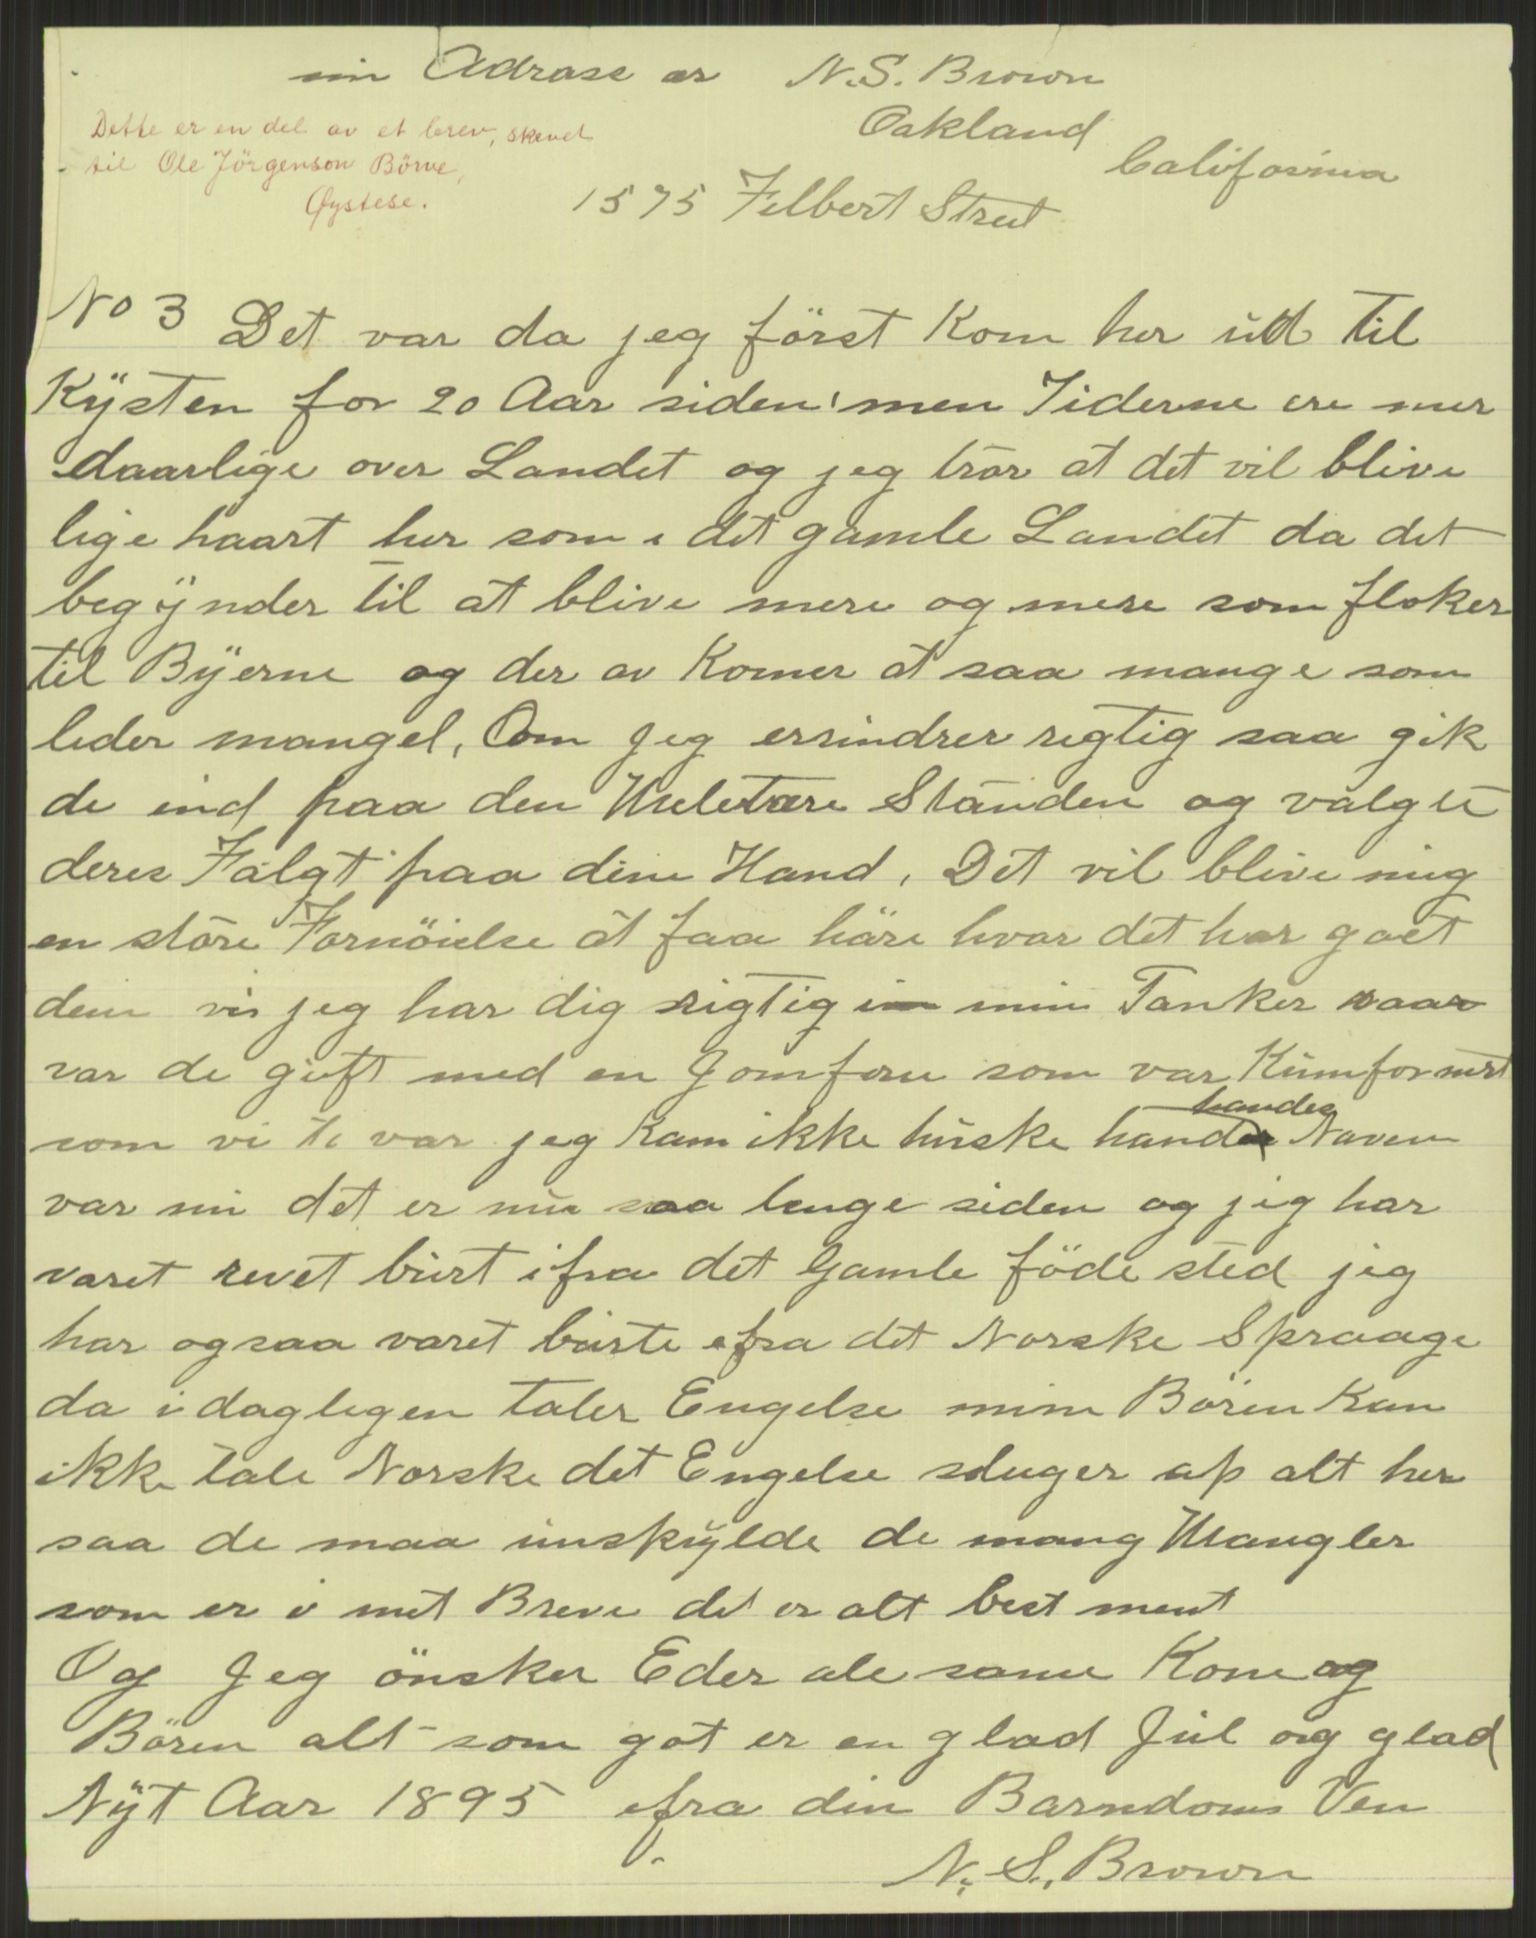 min Adrase er N.S. Brown
Oakland
California
1575 Filbert Street
Dette er en del av et brev, skrevet
til Ole Jörgenson Börve,
Øystese.
No 3 Det var da jeg först Kom her ud til
Kÿsten for 20 Aar siden, men Tiderne ere mer
daarlige over Landet og jeg tror at det vil blive
lige haart her som i det gamle Landet da det
begÿnder til at blive mere og mere som floker
til Bÿerne og der av Komer at saa mange som
leder mangel, Om Jeg erindrer regtig saa gik
de ind paa den Meletære Standen og valgte
deres Falgt paa din Hand, Det vil blive mig
en store Fornöielse at faa häre hvor det har gaet
dem vis jeg har dig rigtig i min Tanker saa
var de guft med en Jomfru som var Kumformert
som vi te var jeg Kam ikke huske handes Naven
var mi det er nu saa lenge siden og jeg har
varet revet burt ifra det Gamle föde sted jeg
har ogsaa varet burte efra det Norske Spraage
da i daglegen taler Engelse mine Bören Kan
ikke tale Norske det Engelse sluger op alt her
saa de maa unskÿlde de mang Mangler
som er i mit Breve det er alt best ment
Og Jeg önsker Eder ale same Kone og
Bören alt som got er en glad Jul og glad
Nÿt Aar 1895 efra din Barndoms Ven
N. S. Brown